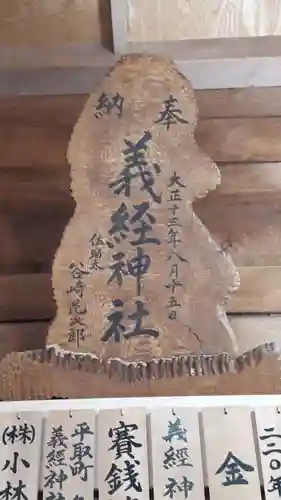 奉納
大正十三年八月十五日
義経神社
佐瑠太
谷崎尼次郎
二二〇
金
義経神
賽銭
平取町
義経神社
(株)小林